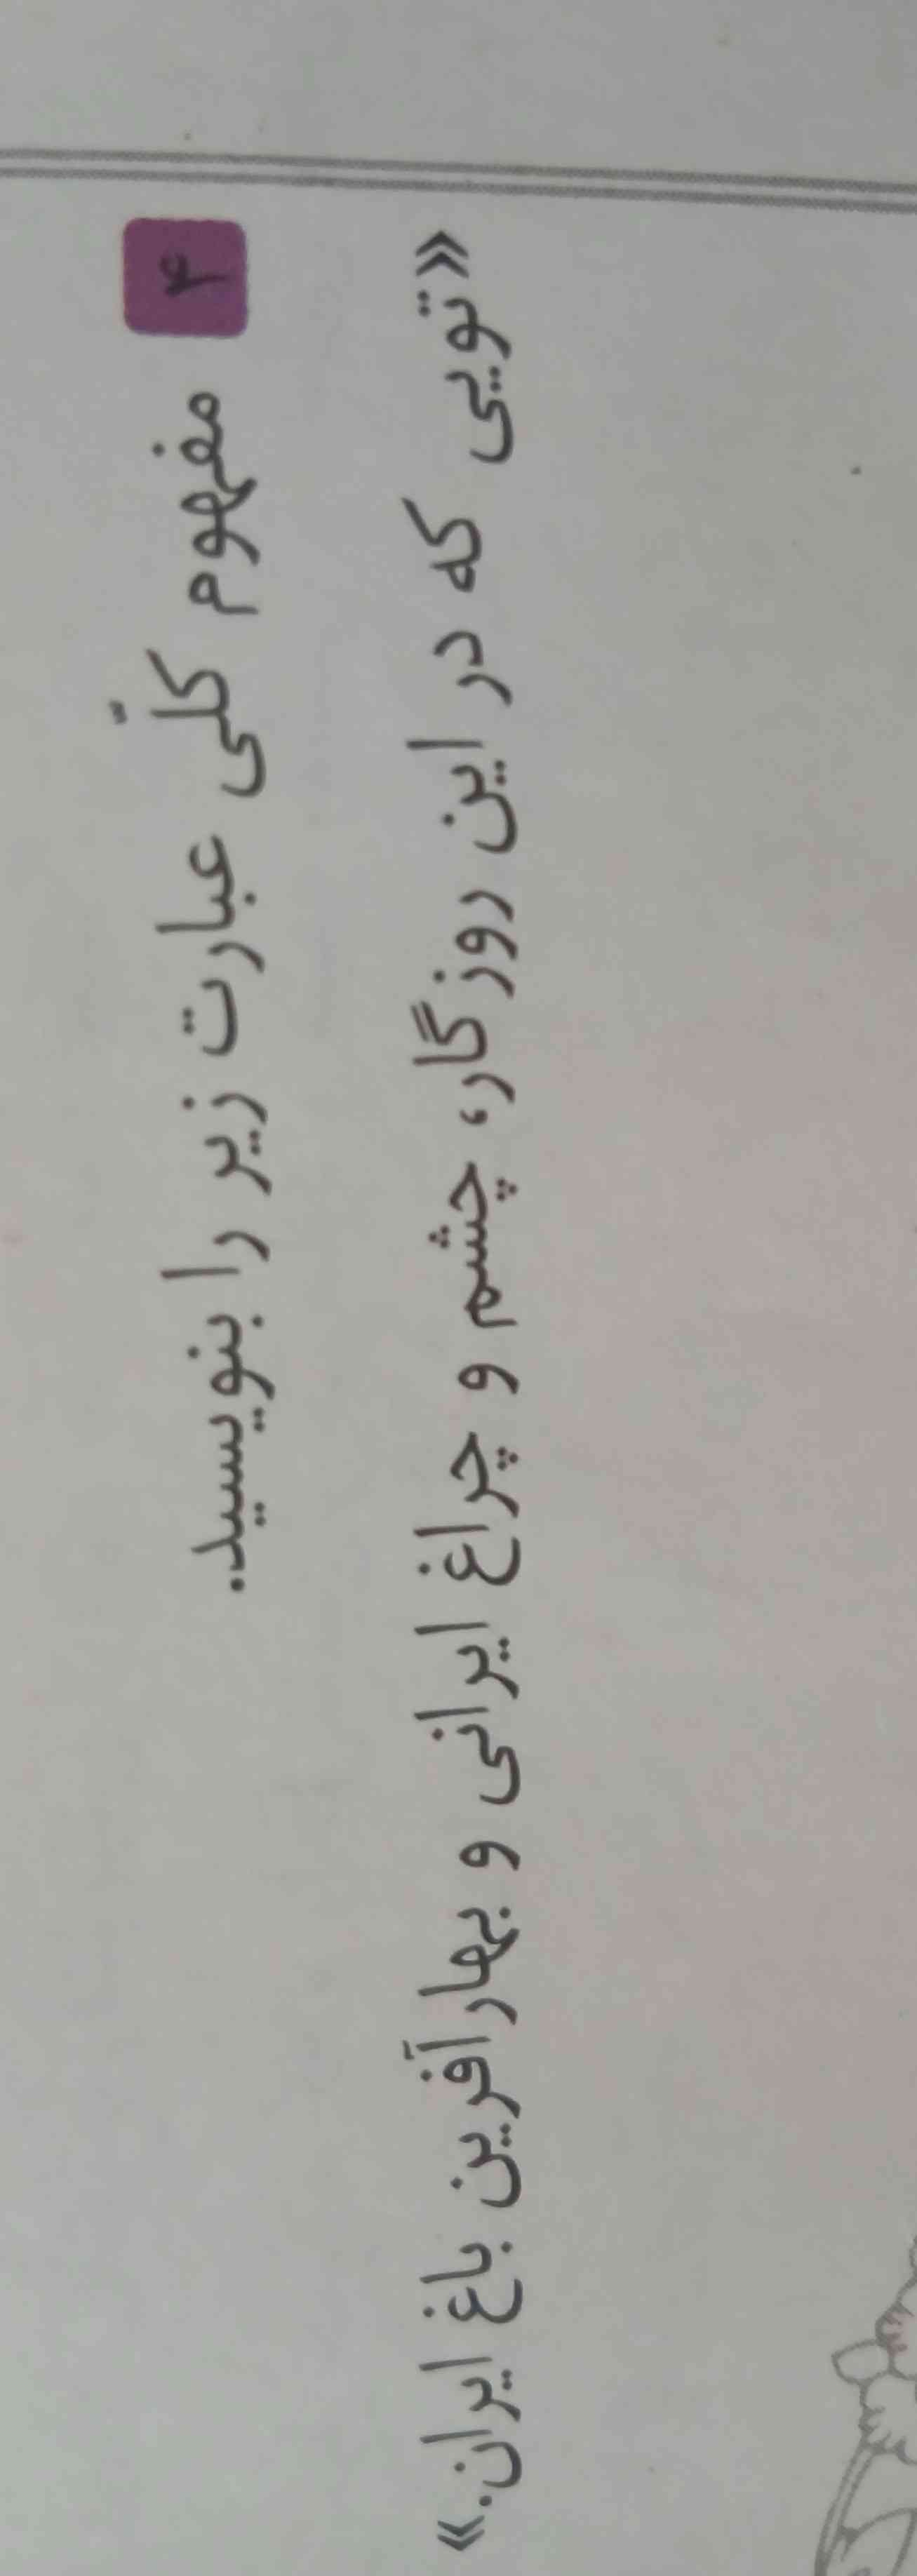 ۴ مفهوم کلّی عبارت زیر را بنویسید.
«تویی که در این روزگار، چشم و چراغ ایرانی و بهارآفرین باغ ایران.»